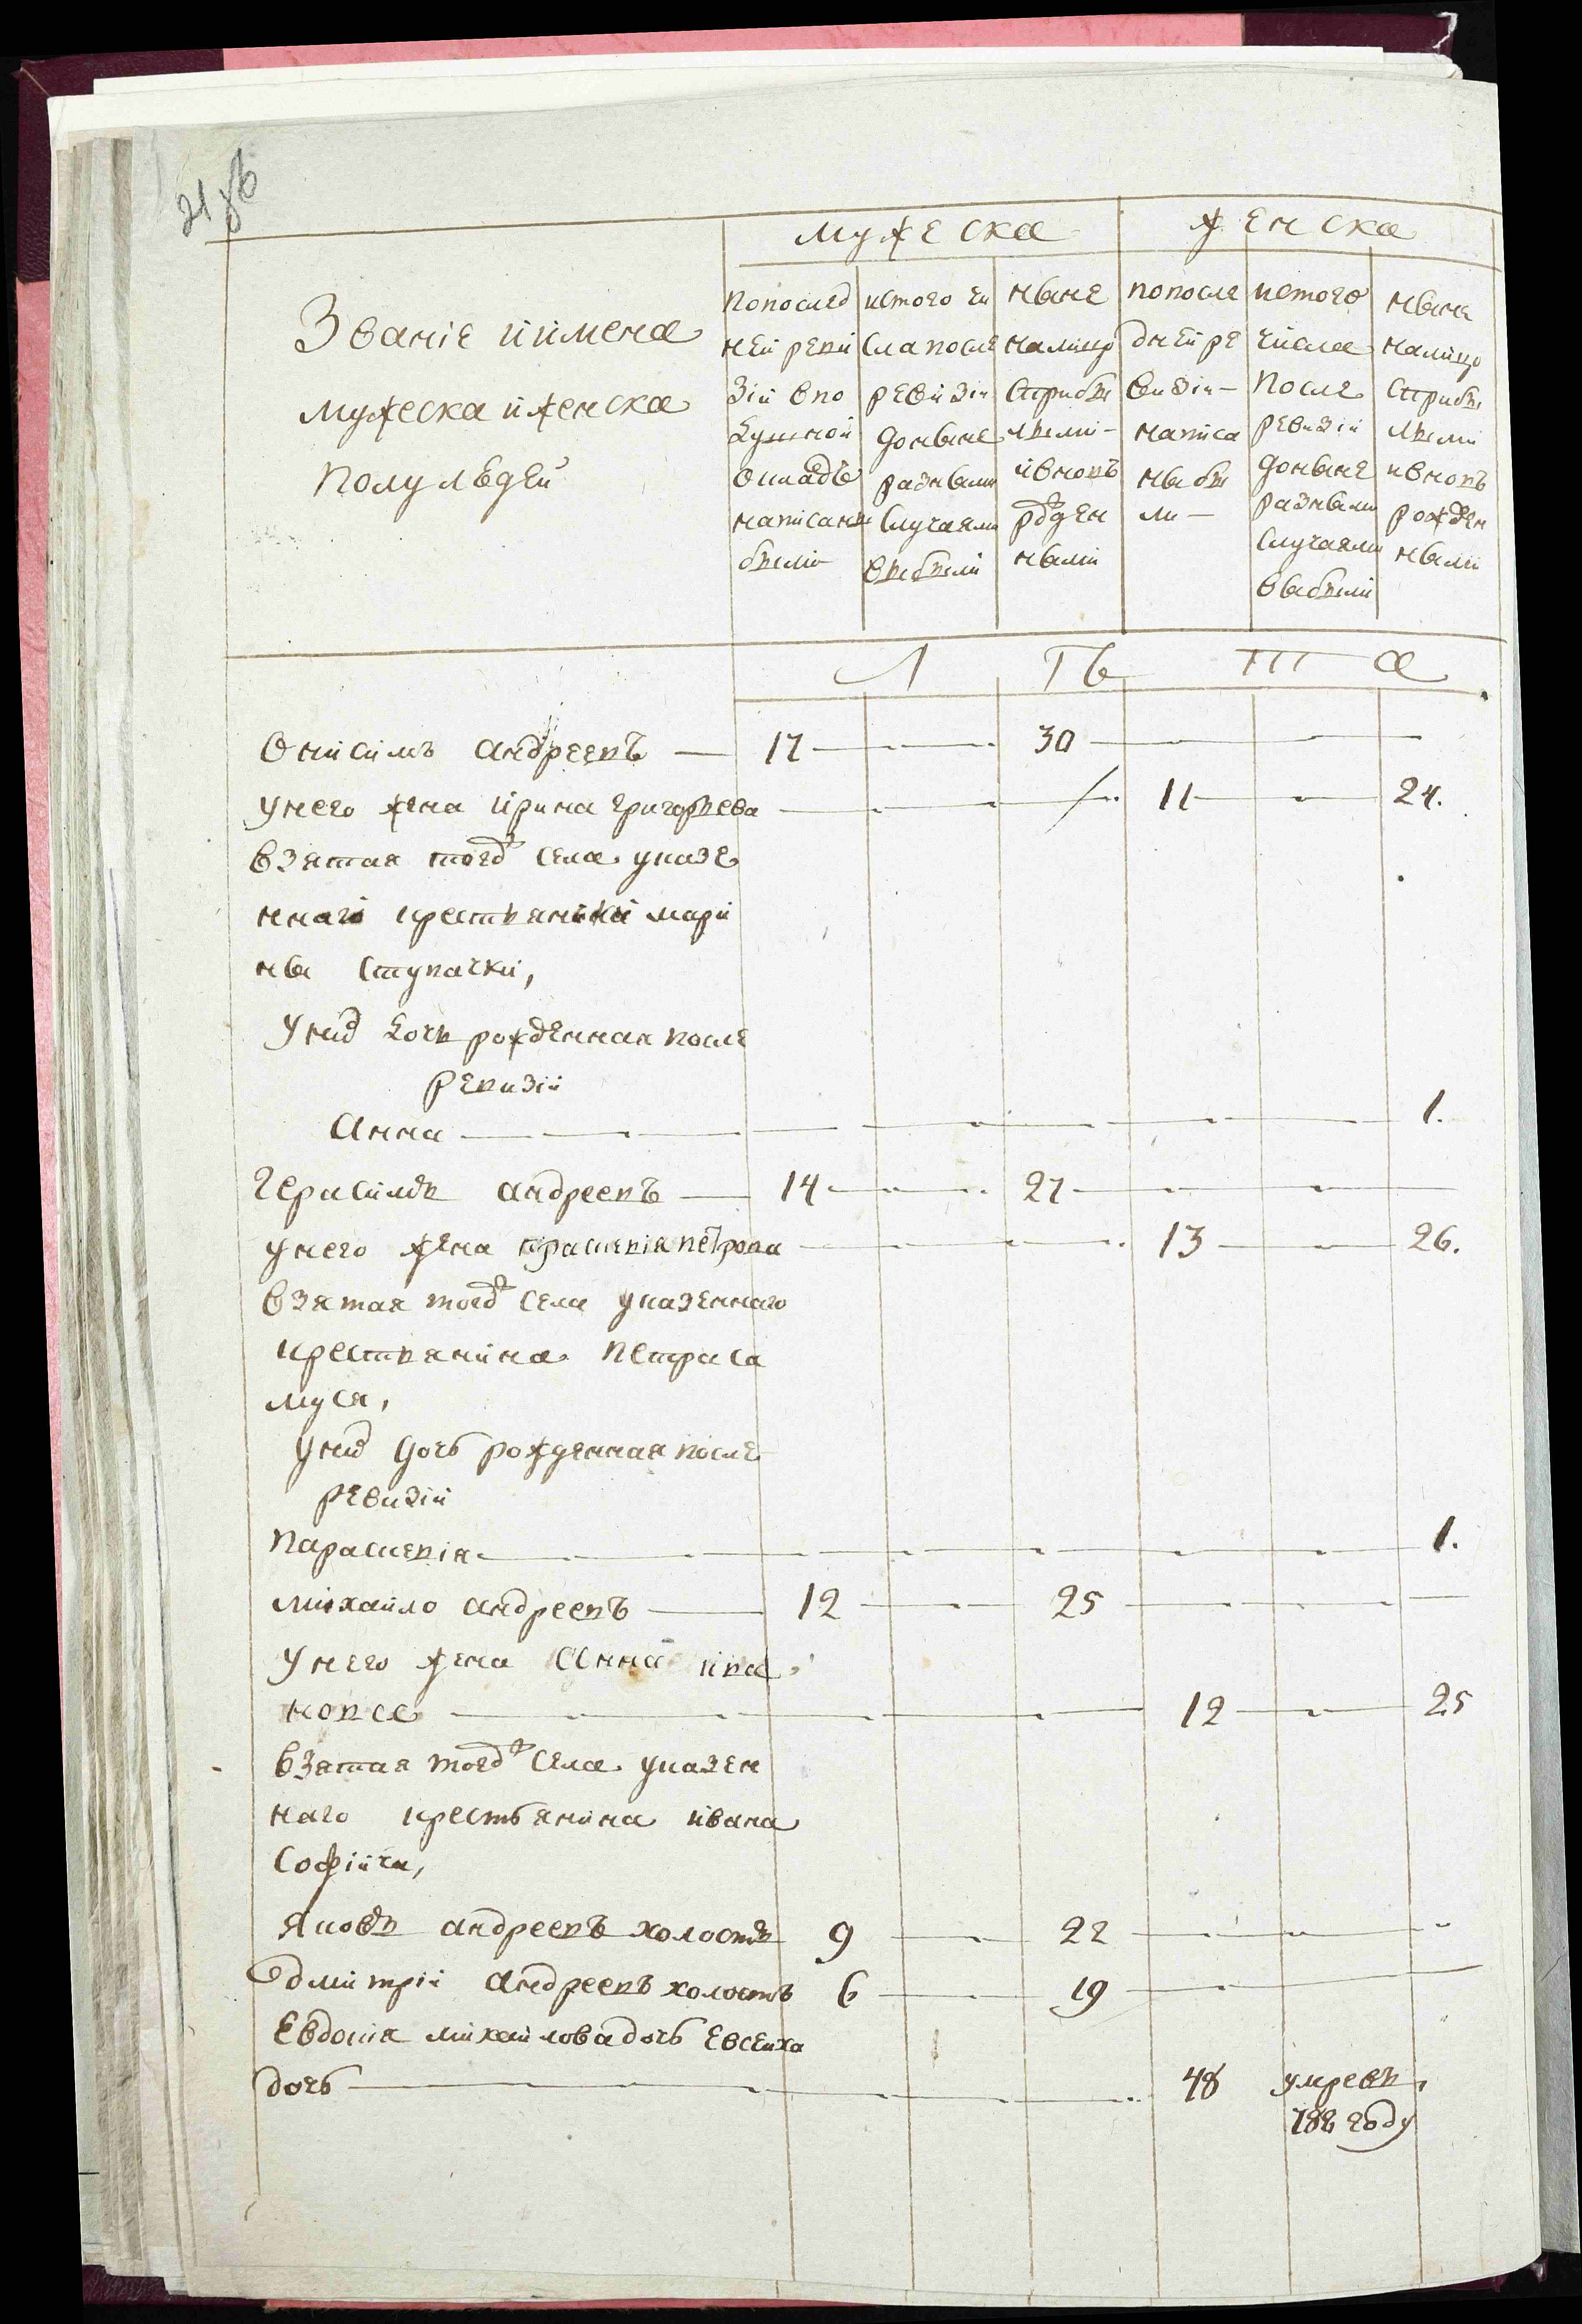 21 об
мужеска женска
Званіе и имена
мужеска и женска
полу людей
попослед
ней реви
зіи впо
душной
окладъ
написаны
были
истого чи
сла после
ревизіи
доныне
разными
случаями
выбыли
ныне
налицо
сприбы
лыми
ивновь
рожден
ными
попосле
дней ре
визіи
написа
ны бы
ли
истого
числа
после
ревизіи
доныне
разными
случаями
выбыли
ныне
налицо
сприбы
лыми
ивновь
рожден
ными
Л Ѣ Т А
Онисимъ андреевъ — 17 — 30 —
унего жена ирина григорьева — 11 — 24.
взятая тогож села указе
ннаго крестьянки мари
ны Ступачки,
уних дочь рожденная после
ревизіи
Анна — 1.
Герасимъ андреевъ — 14 — 27 —
унего жена праскевія петрова — 13 — 26.
взятая тогож села указеннаго
крестьянина петра са
муся,
уних дочь рожденная после
ревизіи
параскевія — 1.
михайло андреевъ — 12 — 25 —
унего жена Анна ива
нова — 12 — 25
взятая тогож села указен
наго крестьянина ивана
Софійчи,
яковъ андреевъ холостъ 9 — 22 —
дмитрій андреевъ холостъ 6 — 19 —
Евдокія михайлова дочь Евсеиха
дочь — 48 умре въ
782 году